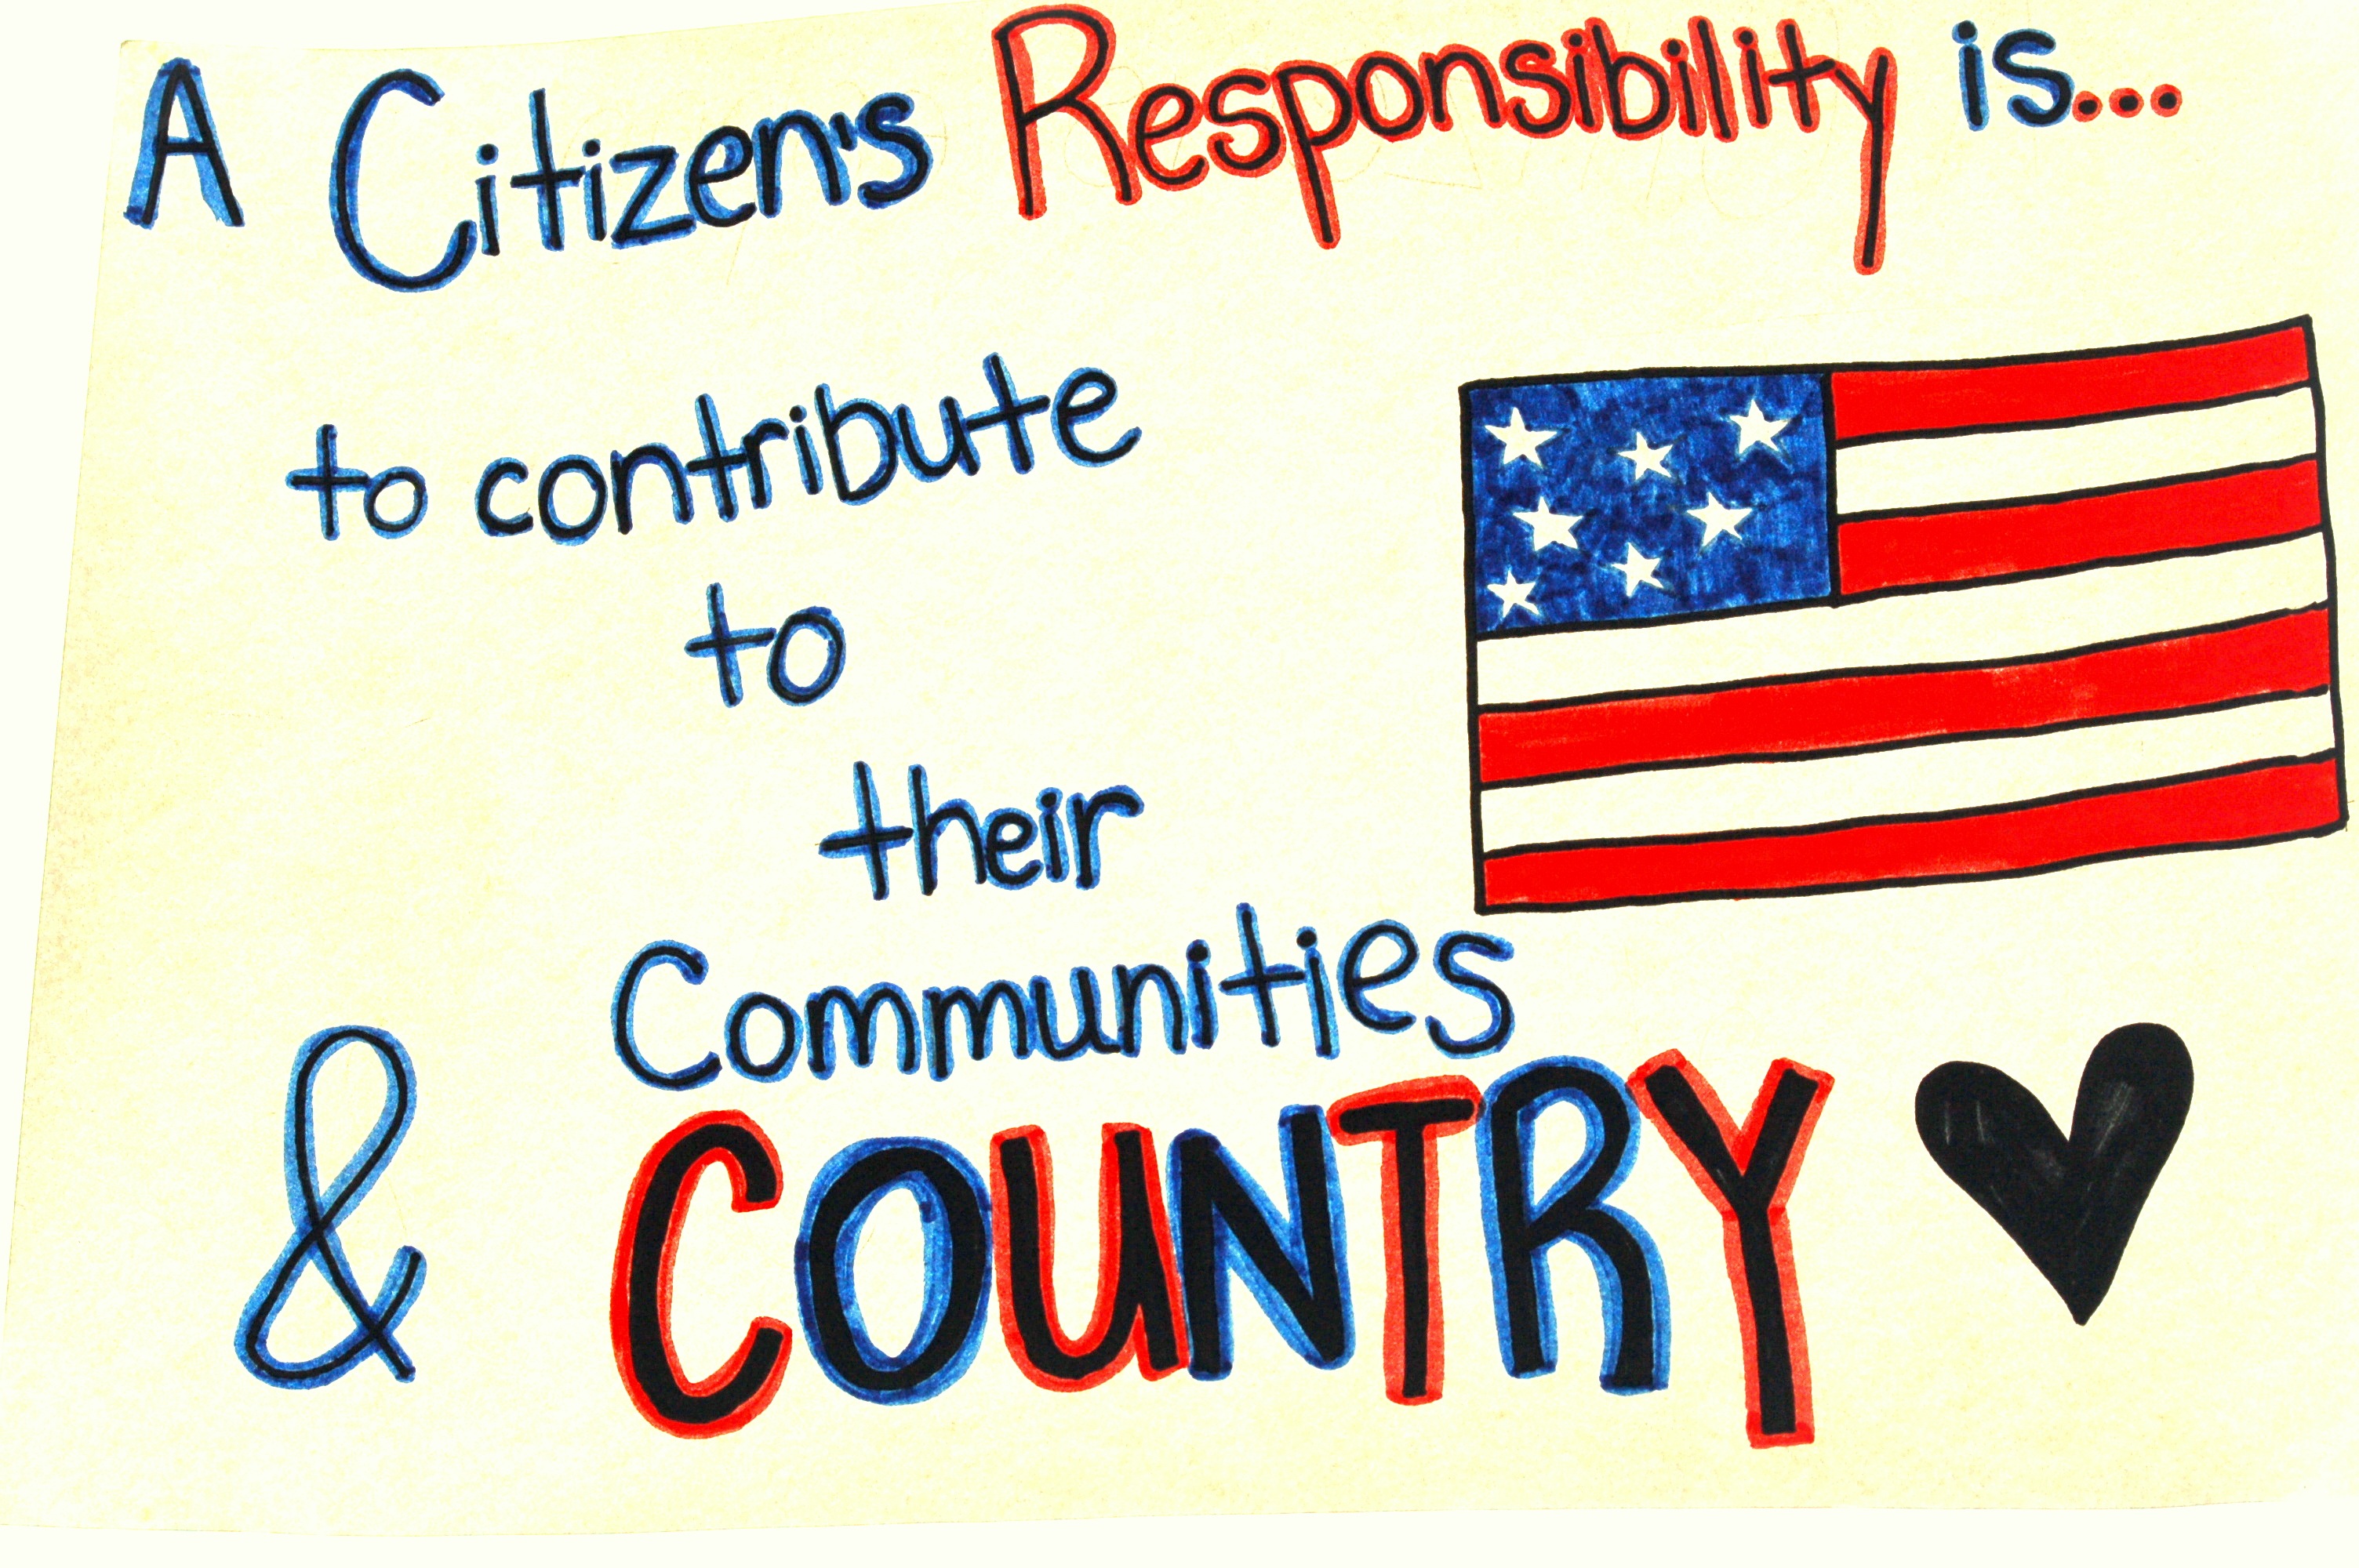 A Citizen's Responsibility is...
to contribute
to
their
Communities
& COUNTRY